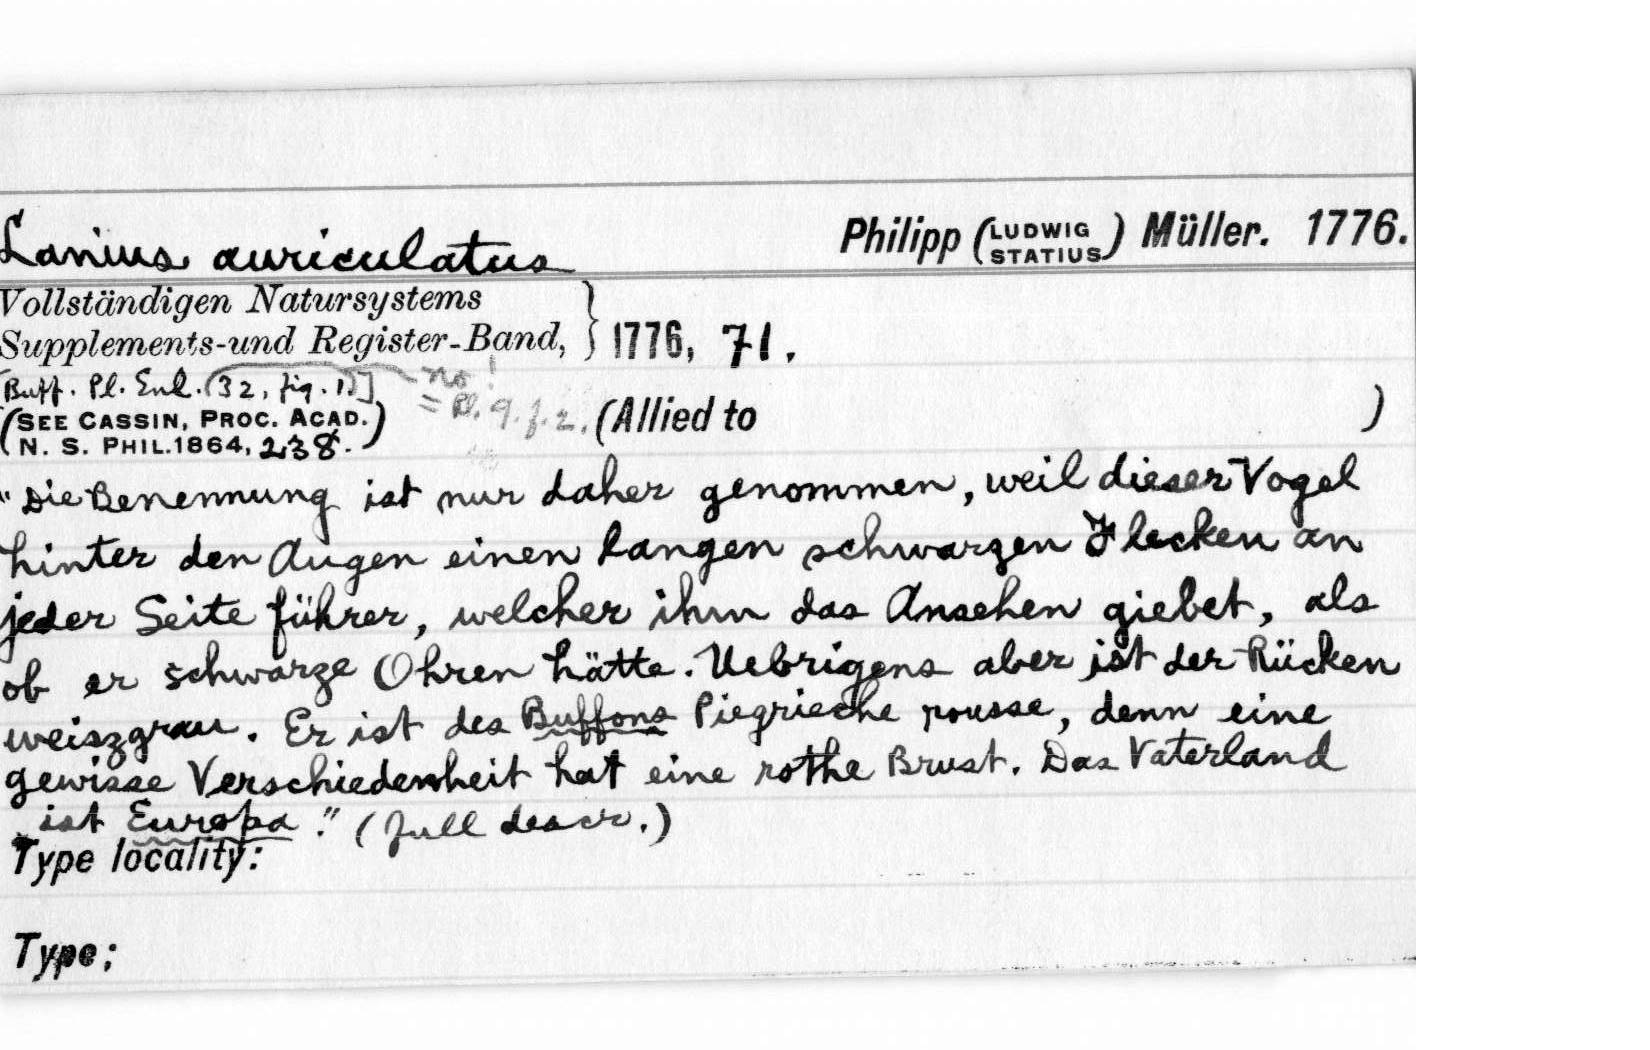 Lanius auriculatus Philipp (LUDWIG STATIUS) Müller. 1776.
Vollständigen Natursystems
Supplements-und Register-Band, } 1776, 71.
[Buff. Pl. Enl. (32, fig. 1)] no!
= Pl. 9. f. 2.
(SEE CASSIN, PROC. ACAD.
N. S. PHIL. 1864, 238.) (Allied to )
"Die Benennung ist nur daher genommen, weil dieser Vogel
hinter den Augen einen langen schwarzen Flecken an
jeder Seite führer, welcher ihm das Ansehen giebet, als
ob er schwarze Ohren hätte. Uebrigens aber ist der Rücken
weiszgrau. Er ist des Buffons Piegrieche rousse, denn eine
gewisse Verschiedenheit hat eine rothe Brust. Das Vaterland
ist Europa." (full descr.)
Type locality:
Type: